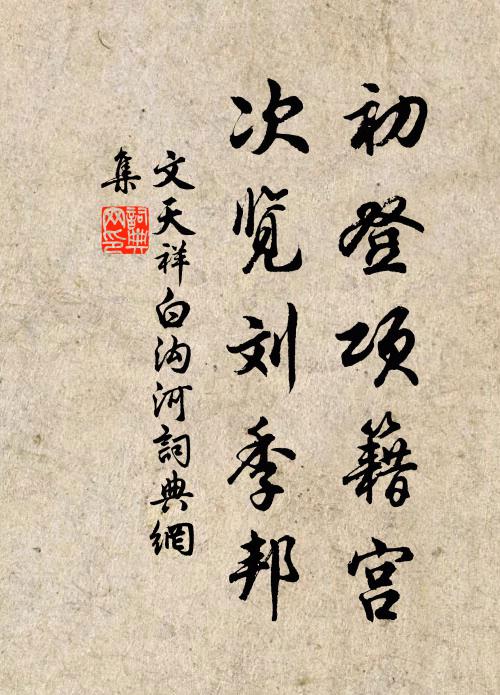 初登项籍宫
次览刘季邦
文天祥白沟河詞典網
集
詞典
网印